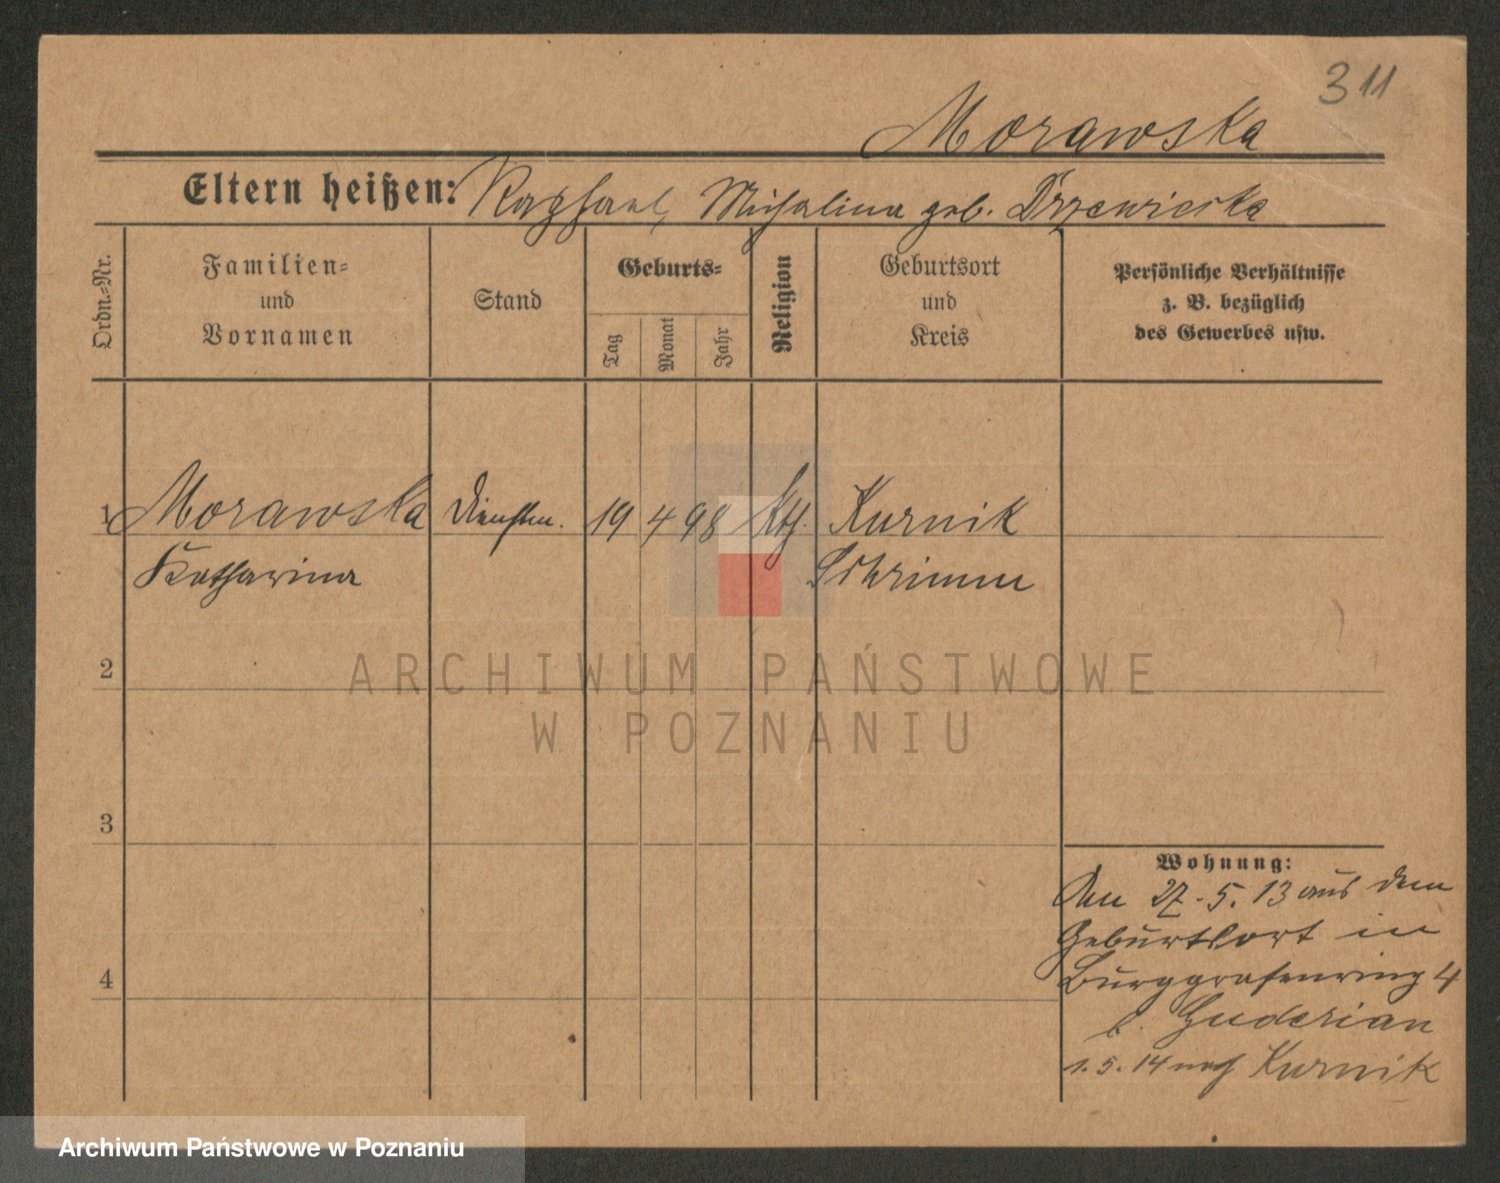 311
Morawska
Eltern heißen: Raphael, Michalina geb. Drzewiecka
Ordn.-Nr.
Familien-
und
Vornamen
Stand
Geburts-
Tag
Monat
Jahr
Religion
Geburtsort
und
Kreis
Persönliche Verhältnisse
z. B. bezüglich
des Gewerbes usw.
1 Morawska Dienstm. 19 4 98 kth. Kurnik
Katharina Schrimm
2
3
4
Wohnung:
Den 27.5.13 aus dem
Geburtsort in
Burggrafenring 4
b. Guderian
1.5.14 nach Kurnik
ARCHIWUM PAŃSTWOWE
W POZNANIU
Archiwum Państwowe w Poznaniu